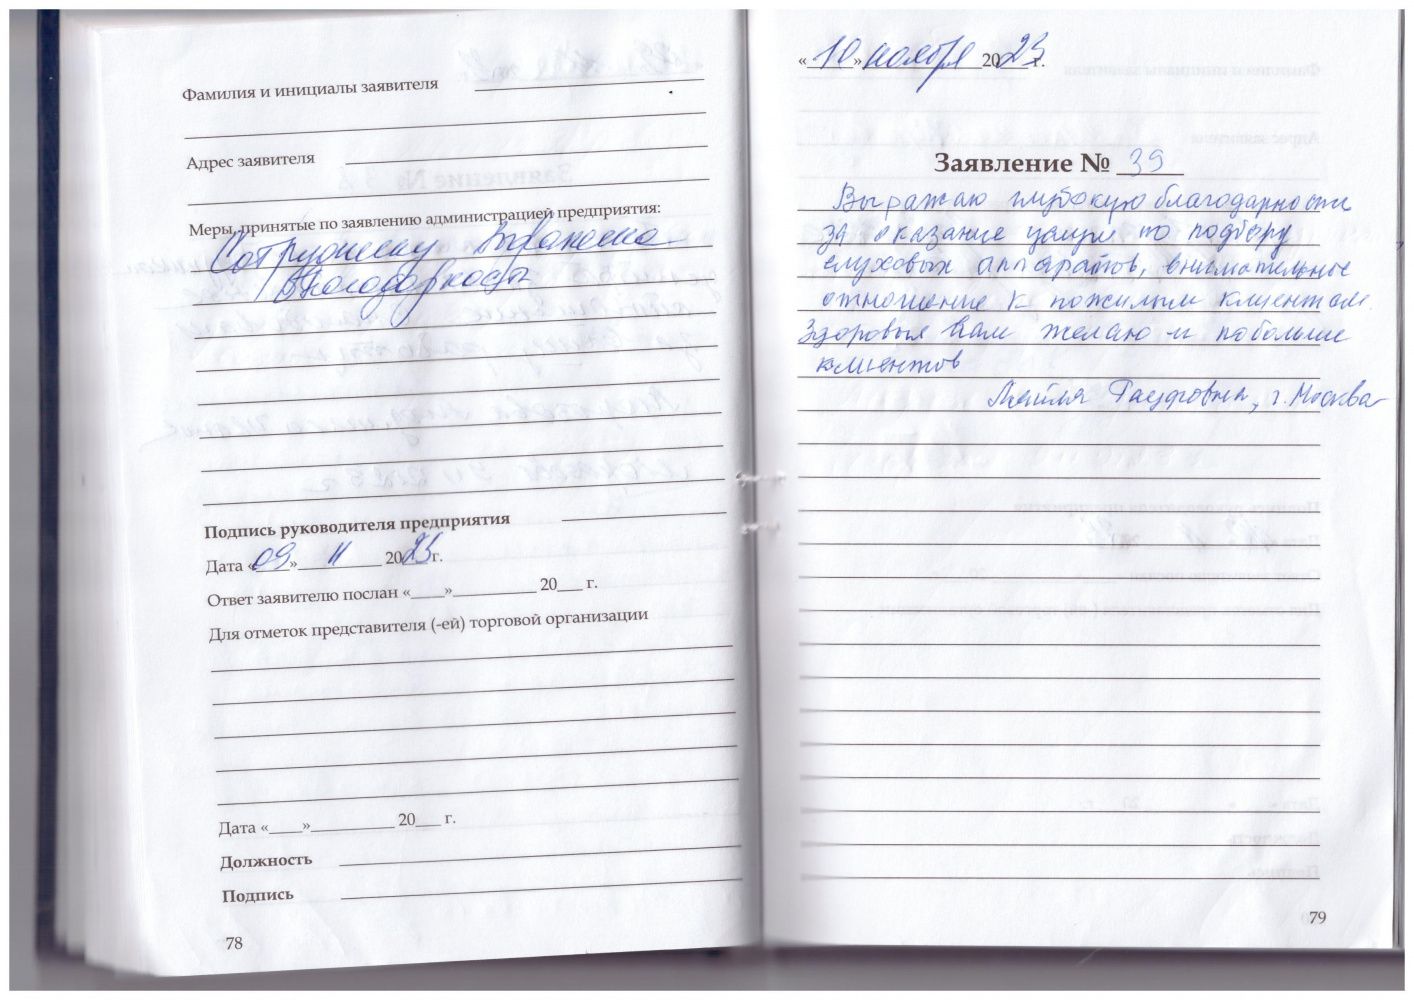 Фамилия и инициалы заявителя
Адрес заявителя
Меры, принятые по заявлению администрацией предприятия:
Сотруднику выражена
благодарность
Подпись руководителя предприятия
Дата «09» 11 2023г.
Ответ заявителю послан «____»__________ 20___ г.
Для отметок представителя (-ей) торговой организации
Дата «____»__________ 20___ г.
Должность
Подпись
78
«10» ноября 2023г.
Заявление № 39
Выражаю глубокую благодарность
за оказание услуги по подбору
слуховых аппаратов, внимательное
отношение к пожилым клиентам.
Здоровья Вам желаю и побольше
клиентов
Гауфовна, г. Москва
79